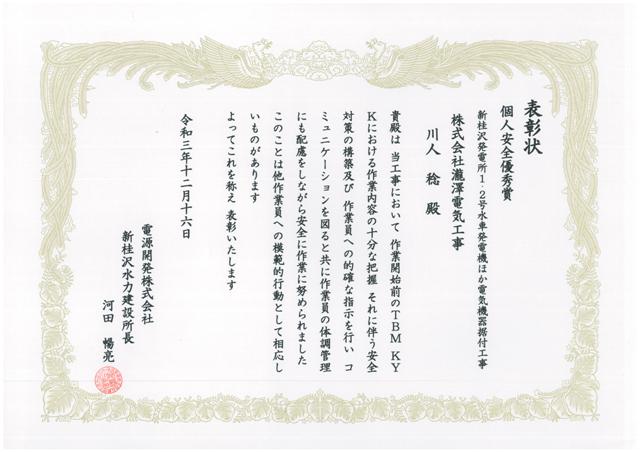 表彰状
個人安全優秀賞
新桂沢発電所1・2号水車発電機ほか電気機器据付工事
株式会社瀧澤電気工事
川人 稔 殿
貴殿は 当工事において 作業開始前のTBM KY
Kにおける作業内容の十分な把握 それに伴う安全
対策の構築及び 作業員への的確な指示を行い コ
ミュニケーションを図ると共に作業員の体調管理
にも配慮をしながら安全に作業に努められました
このことは他作業員への模範的行動として相応し
いものがあります
よってこれを称え 表彰いたします
令和三年十二月十六日
電源開発株式会社
新桂沢水力建設所長
河田 暢亮